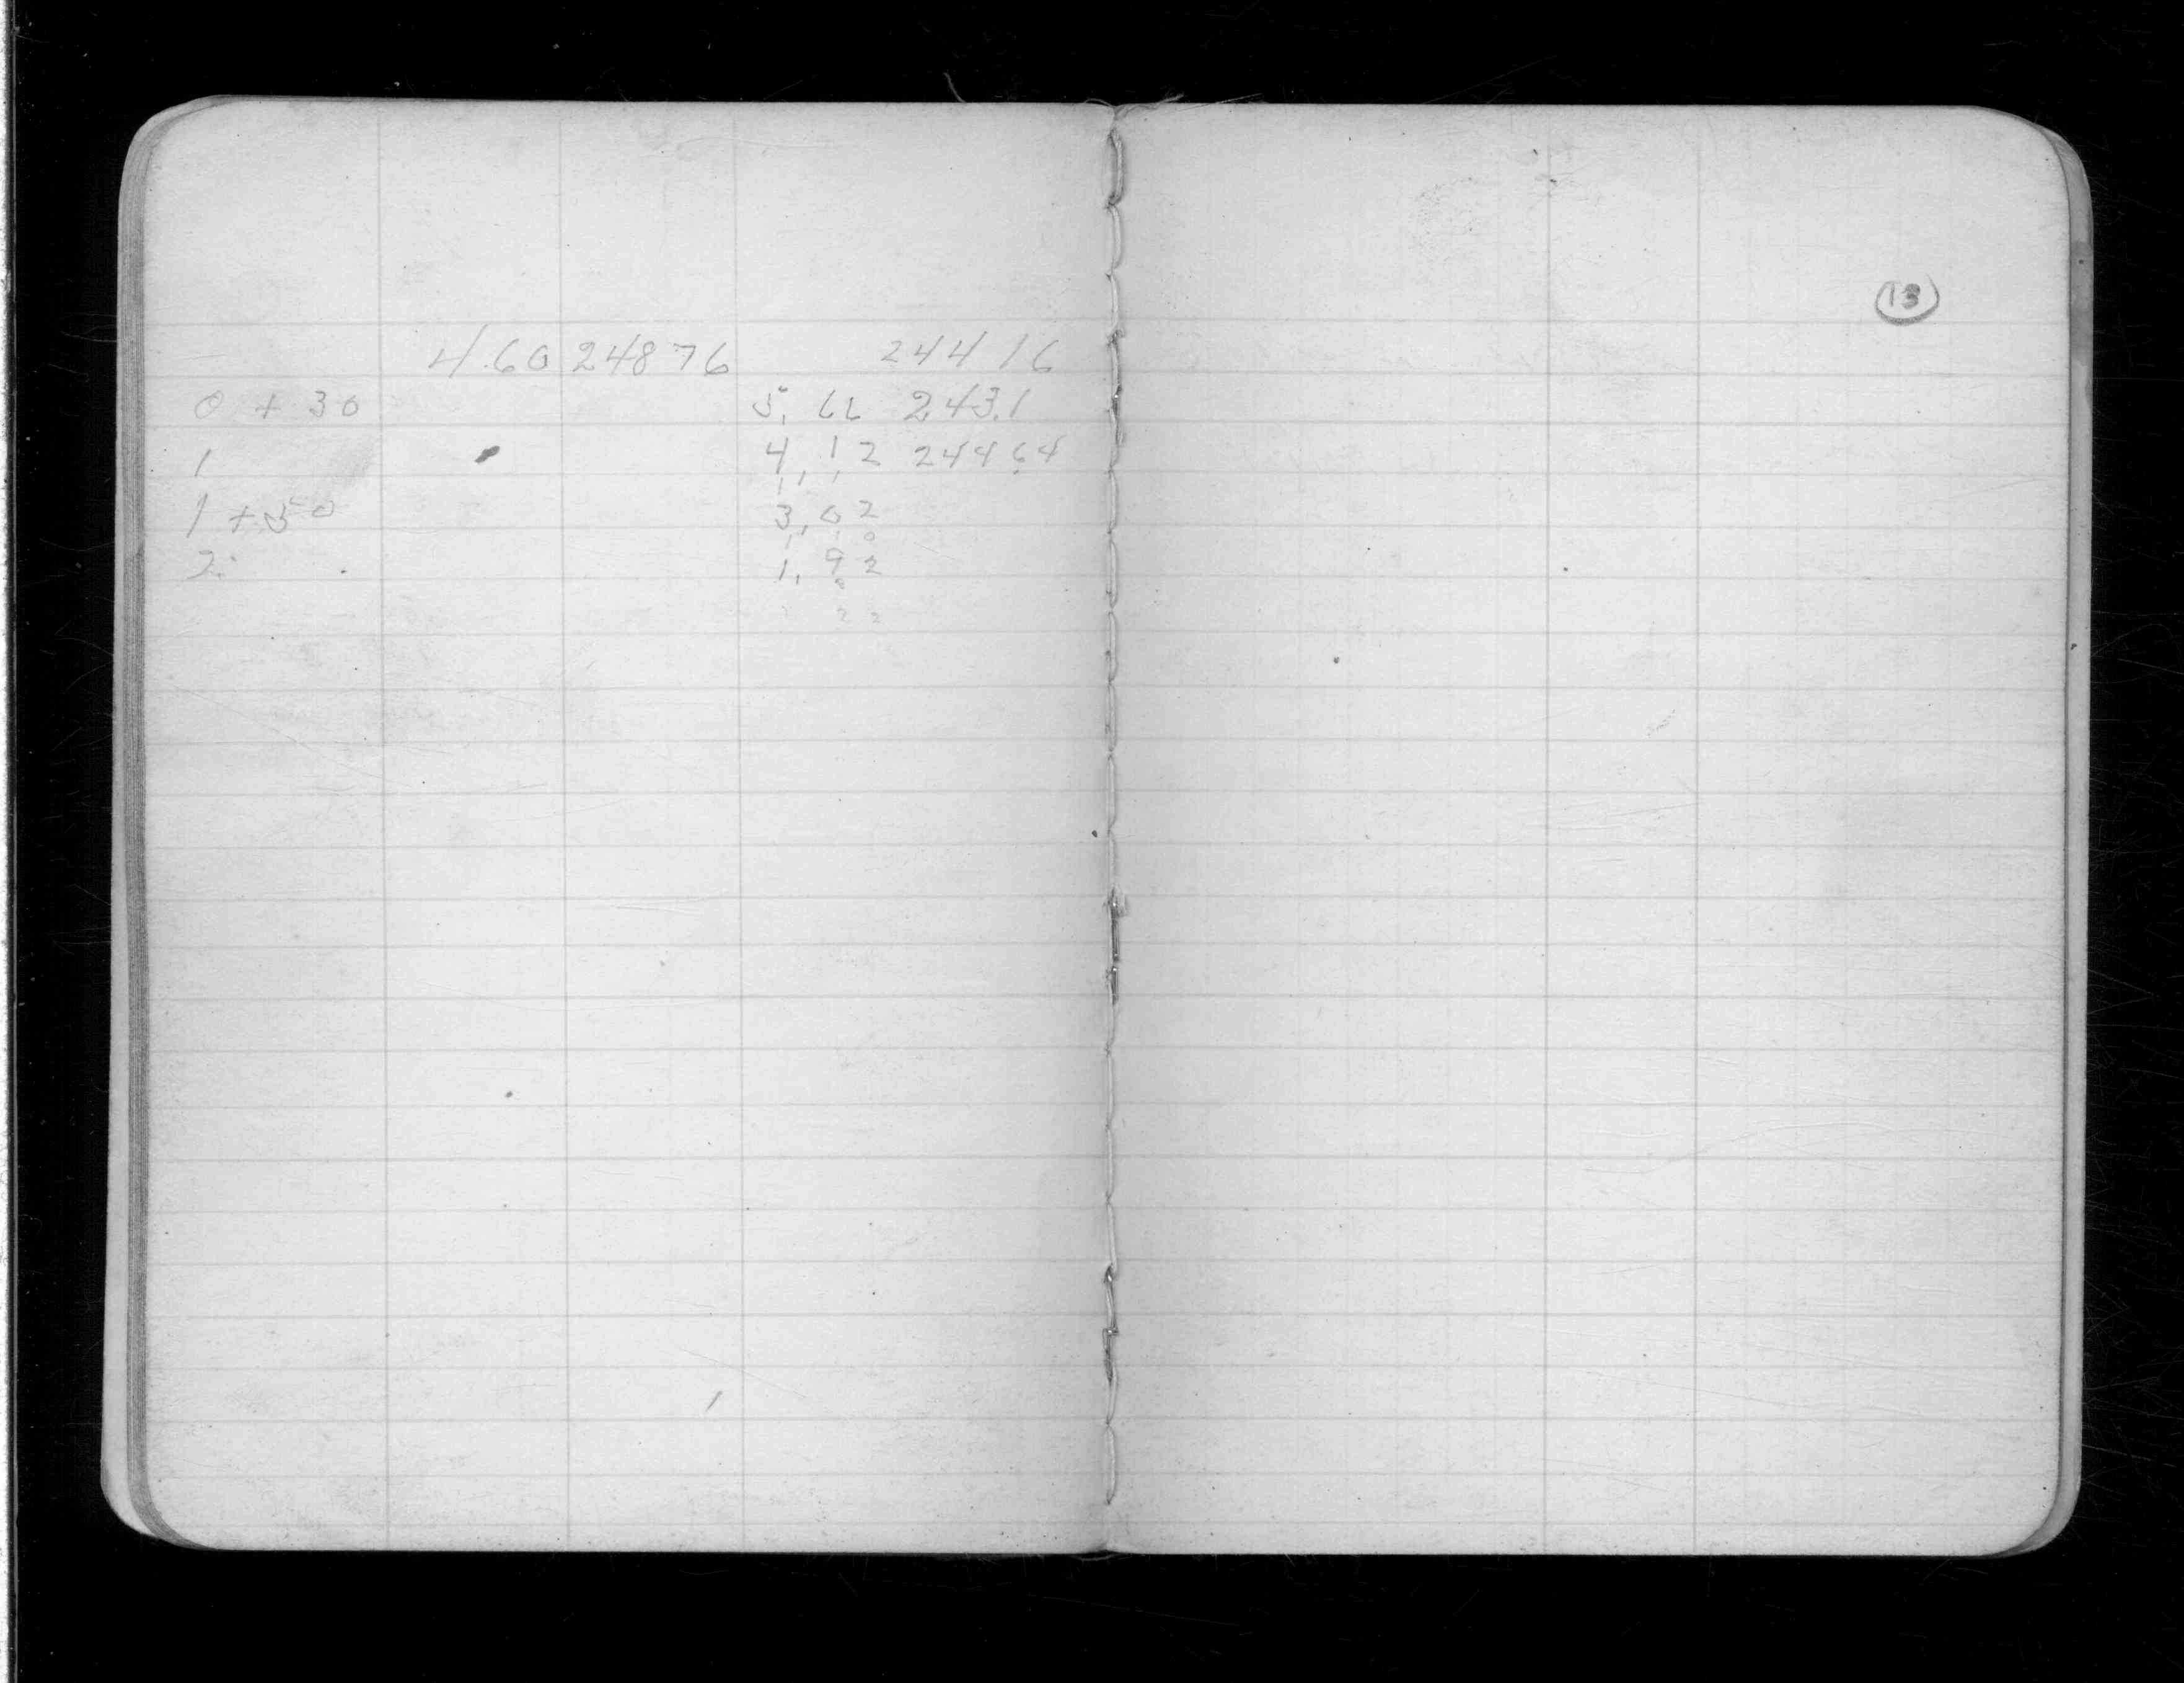 4.60 248 76 244 16
0 + 30 5, 66 243.1
1 4, 12 244 64
1 + 50 3, 02
2 1, 92
2 2
13